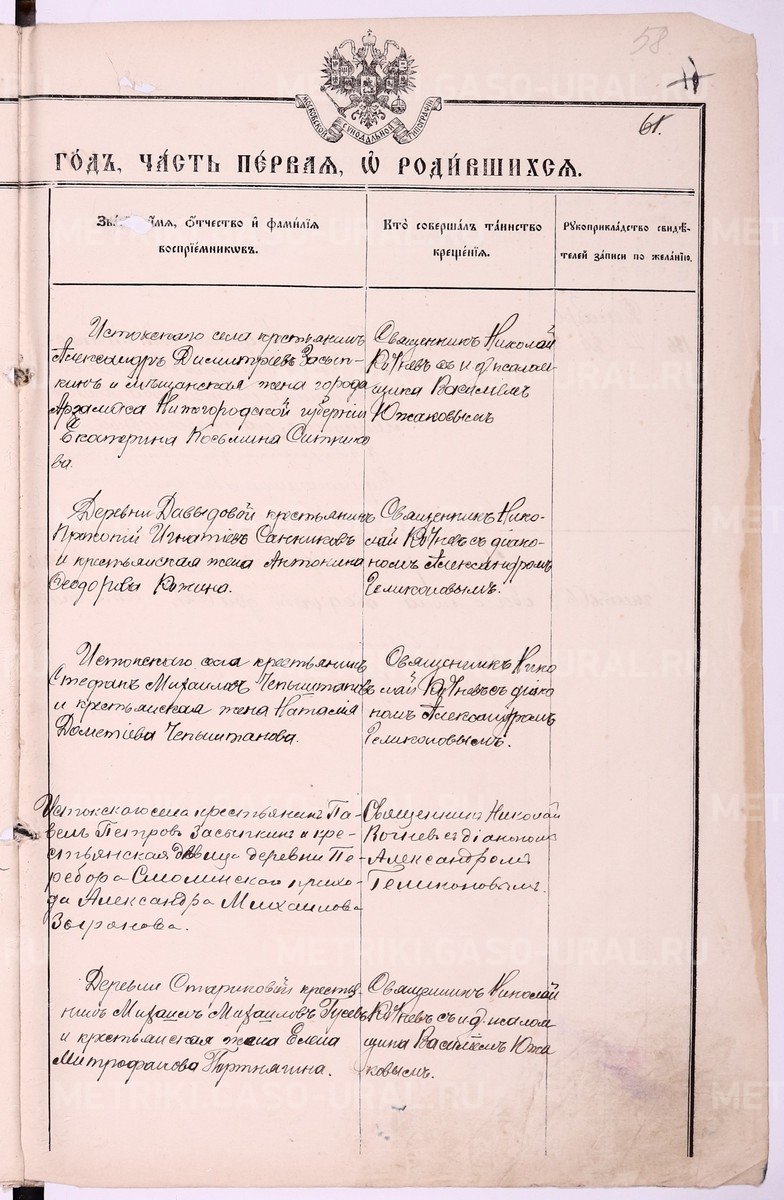 58
61.
МОСКОВСКОЙ СѴНОДАЛЬНОЙ ТИПОГРАФІИ
ГО́ДЪ, ЧА́СТЬ ПЕ́РВАЯ, Ѽ РОДИ́ВШИХСЯ.
И́МЯ, Ѻ҆́ТЧЕСТВО И҆ ФАМИ́ЛІЯ
ВОСПРІЕ́МНИКѠВЪ.
КТО̀ СОВЕРША́ЛЪ ТА́ИНСТВО
КРЕЩЕ́НІЯ.
РꙊКОПРИКЛА́ДСТВО СВИДѢ́-
ТЕЛЕЙ ЗА́ПИСИ ПО ЖЕЛА́НІЮ.
Истокскаго села крестьянинъ
Александръ Димитріевъ Засып-
кинъ и мѣщанская жена города
Арзамаса Нижегородской губерніи
Екатерина Косьмина Ситнико
ва.
Священникъ Николай
Кочневъ съ и.д. псалом-
щика Василіемъ
Южаковымъ
Деревни Давыдовой крестьянинъ
Прокопій Игнатіевъ Санниковъ
и крестьянская жена Антонина
Ѳеодорова Кожина.
Священникъ Нико-
лай Кочневъ съ діако-
номъ Александромъ
Геликоновымъ.
Истокскаго села крестьянинъ
Стефанъ Михаиловъ Чепыштановъ
и крестьянская жена Наталія
Дометіева Чепыштанова.
Священникъ Нико
лай Кочневъ съ діако
номъ Александромъ
Геликоновымъ.
Истокского села крестьянинъ Па-
велъ Петровъ Засыпкинъ и кре-
стьянская дѣвица деревни Пе
ребора Смолинскаго прихо-
да Александра Михаилова
Зырянова.
Священникъ Николай
Кочневъ съ діакономъ
Александромъ
Геликоновымъ.
Деревни Стариковой крестья-
нинъ Михаилъ Михаиловъ Гусевъ
и крестьянская жена Елена
Митрофанова Портнягина.
Священникъ Николай
Кочневъ съ и.д. псалом
щика Василіемъ Южа
ковымъ.
METRIKI.GASO-URAL.RU